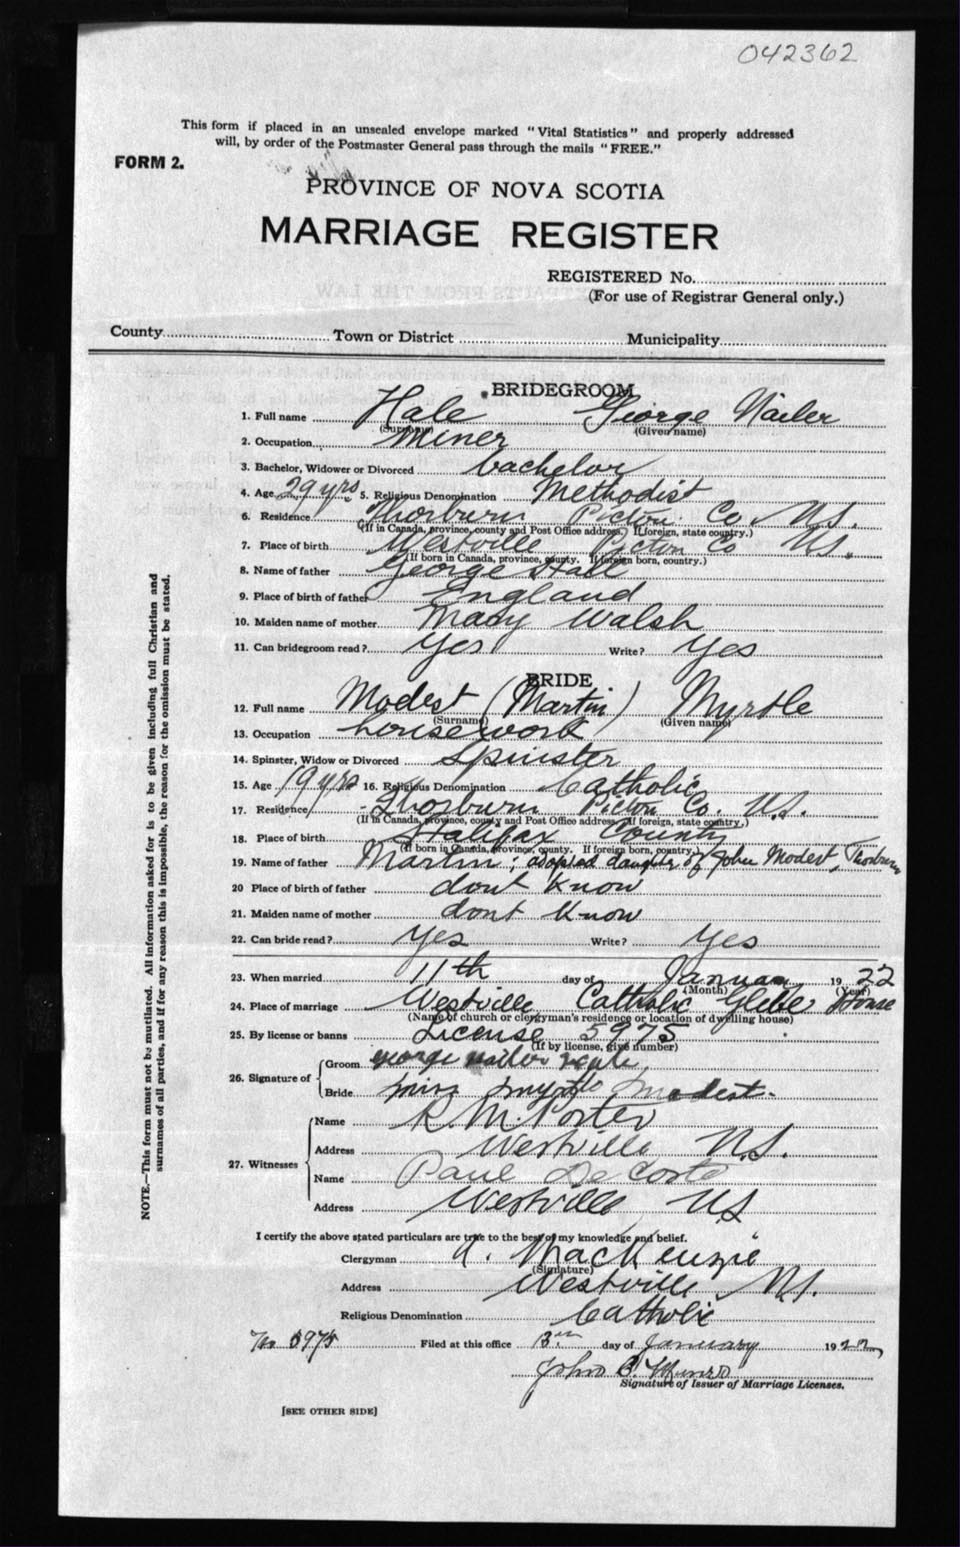 042362
This form if placed in an unsealed envelope marked "Vital Statistics" and properly addressed
will, by order of the Postmaster General pass through the mails "FREE."
FORM 2.
PROVINCE OF NOVA SCOTIA
MARRIAGE REGISTER
REGISTERED No.
(For use of Registrar General only.)
County Town or District Municipality
BRIDEGROOM
1. Full name Hale George Nailer
(Surname) (Given name)
2. Occupation Miner
3. Bachelor, Widower or Divorced bachelor
4. Age 29 yrs. 5. Religious Denomination Methodist
6. Residence Thorburn Pictou Co N.S.
(If in Canada, province, county and Post Office address. If foreign, state country.)
7. Place of birth Westville Pictou Co N.S.
(If born in Canada, province, county. If foreign born, country.)
8. Name of father George Hale
9. Place of birth of father England
10. Maiden name of mother Mary Walsh
11. Can bridegroom read? Yes Write? Yes
BRIDE
12. Full name Modest (Martin) Myrtle
(Surname) (Given name)
13. Occupation housework
14. Spinster, Widow or Divorced Spinster
15. Age 19 yrs 16. Religious Denomination Catholic
17. Residence Thorburn Pictou Co. N.S.
(If in Canada, province, county and Post Office address. If foreign, state country.)
18. Place of birth Halifax County
(If born in Canada, province, county. If foreign born, country.)
19. Name of father Martin; adopted daughter of John Modest, Thorburn
20 Place of birth of father dont know
21. Maiden name of mother dont know
22. Can bride read? Yes Write? Yes
23. When married 11th day of January 1922
(Month) (Year)
24. Place of marriage Westville Catholic Glebe House
(Name of church or clergyman's residence or location of dwelling house)
25. By license or banns License 5975
(If by license, give number)
26. Signature of Groom george nailer hale
Bride miss myrtle modest.
27. Witnesses Name R. M. Porter
Address Westville N.S.
Name Paul DeCoste
Address Westville NS
I certify the above stated particulars are true to the best of my knowledge and belief.
Clergyman MacKenzie
(Signature)
Address Westville N.S.
Religious Denomination Catholic
No 5975 Filed at this office 13th day of January 1922
John Munro
Signature of Issuer of Marriage Licenses.
[SEE OTHER SIDE]
NOTE.—This form must not be mutilated. All information asked for is to be given including full Christian and
surnames of all parties, and if for any reason this is impossible, the reason for the omission must be stated.